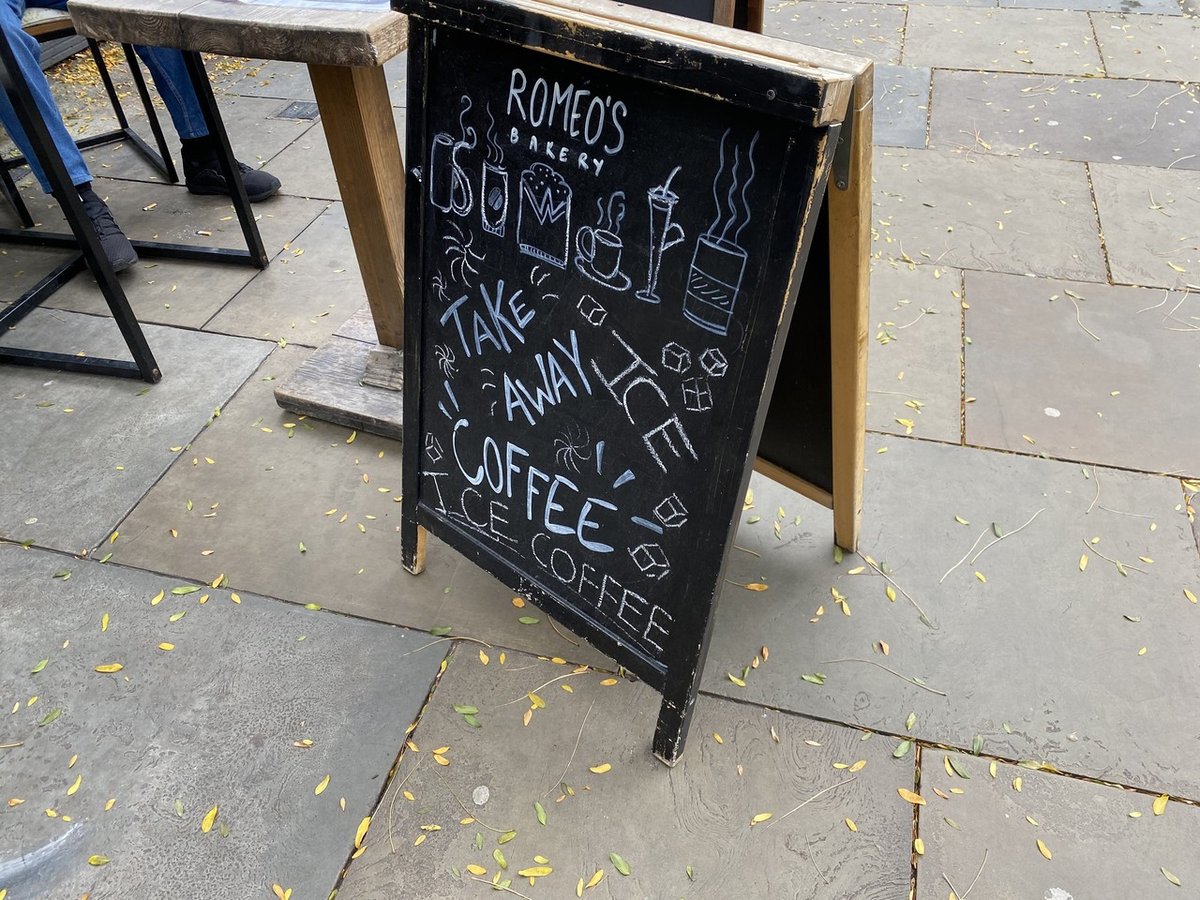 ROMEO'S
BAKERY
TAKE
AWAY
ICE
COFFEE
ICE COFFEE